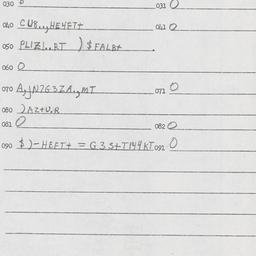 030 031 0
040 CU8.,,HEYFT+ 041 0
050 PLIZI..RT )$FALB+
060 0
070 A,jN7G3ZA.,mT 071 0
080 )AZ+U,R
081 0 082 0
090 $)-HEFT+ = G3S+T144KT 091 0